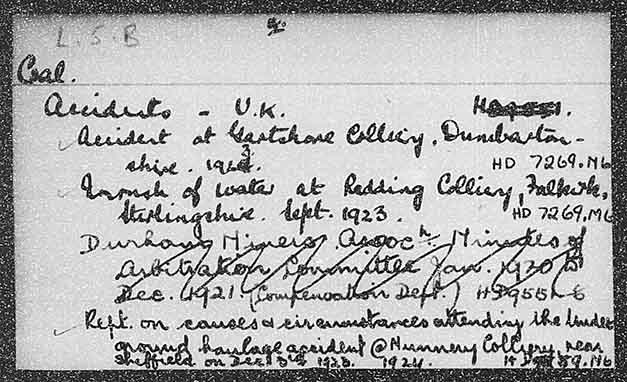 L.S.B
Coal.
Accidents - U.K.
Accident at Gartshore Colliery, Dumbarton-
shire. 1923. HD 7269.M6
Inrush of water at Redding Colliery, Falkirk,
Stirlingshire. Sept. 1923. HD 7269.M6
Durham Miners Assocn. Minutes of
Arbitration Committee Jan. 1920 to
Dec. 1921. (Compensation Dept.)
Rept. on causes & circumstances attending the under
ground haulage accident @ Nunnery Colliery, near
Sheffield on Dec 3rd 1923. 1924. 69.M6